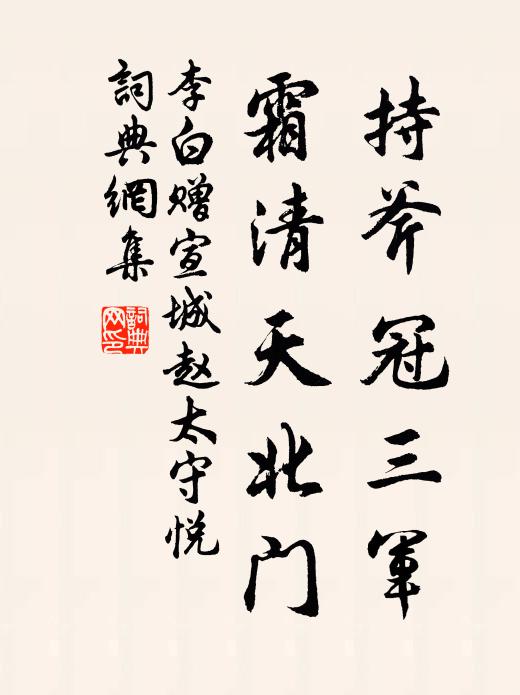 持斧冠三軍
霜清天北门
李白赠宣城赵太守悦
詞典網集
詞典
网印